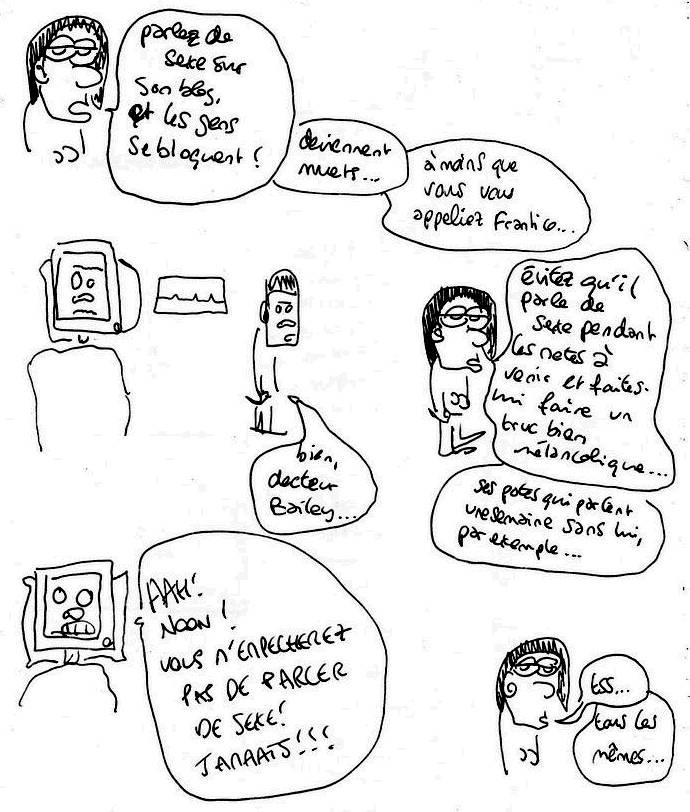 parlez de
sexe sur
son blog,
et les gens
se bloquent !
deviennent
muets...
à moins que
vous vous
appeliez Frantico...
évitez qu'il
parle de
sexe pendant
les notes à
venir et faites-
lui faire un
truc bien
mélancolique...
bien,
docteur
Bailey...
ses potes qui partent
une semaine sans lui,
par exemple...
AAH!
NOON!
VOUS N'EMPECHEREZ
PAS DE PARLER
DE SEXE!
JAMAAIS!!!
tss...
tous les
mêmes...